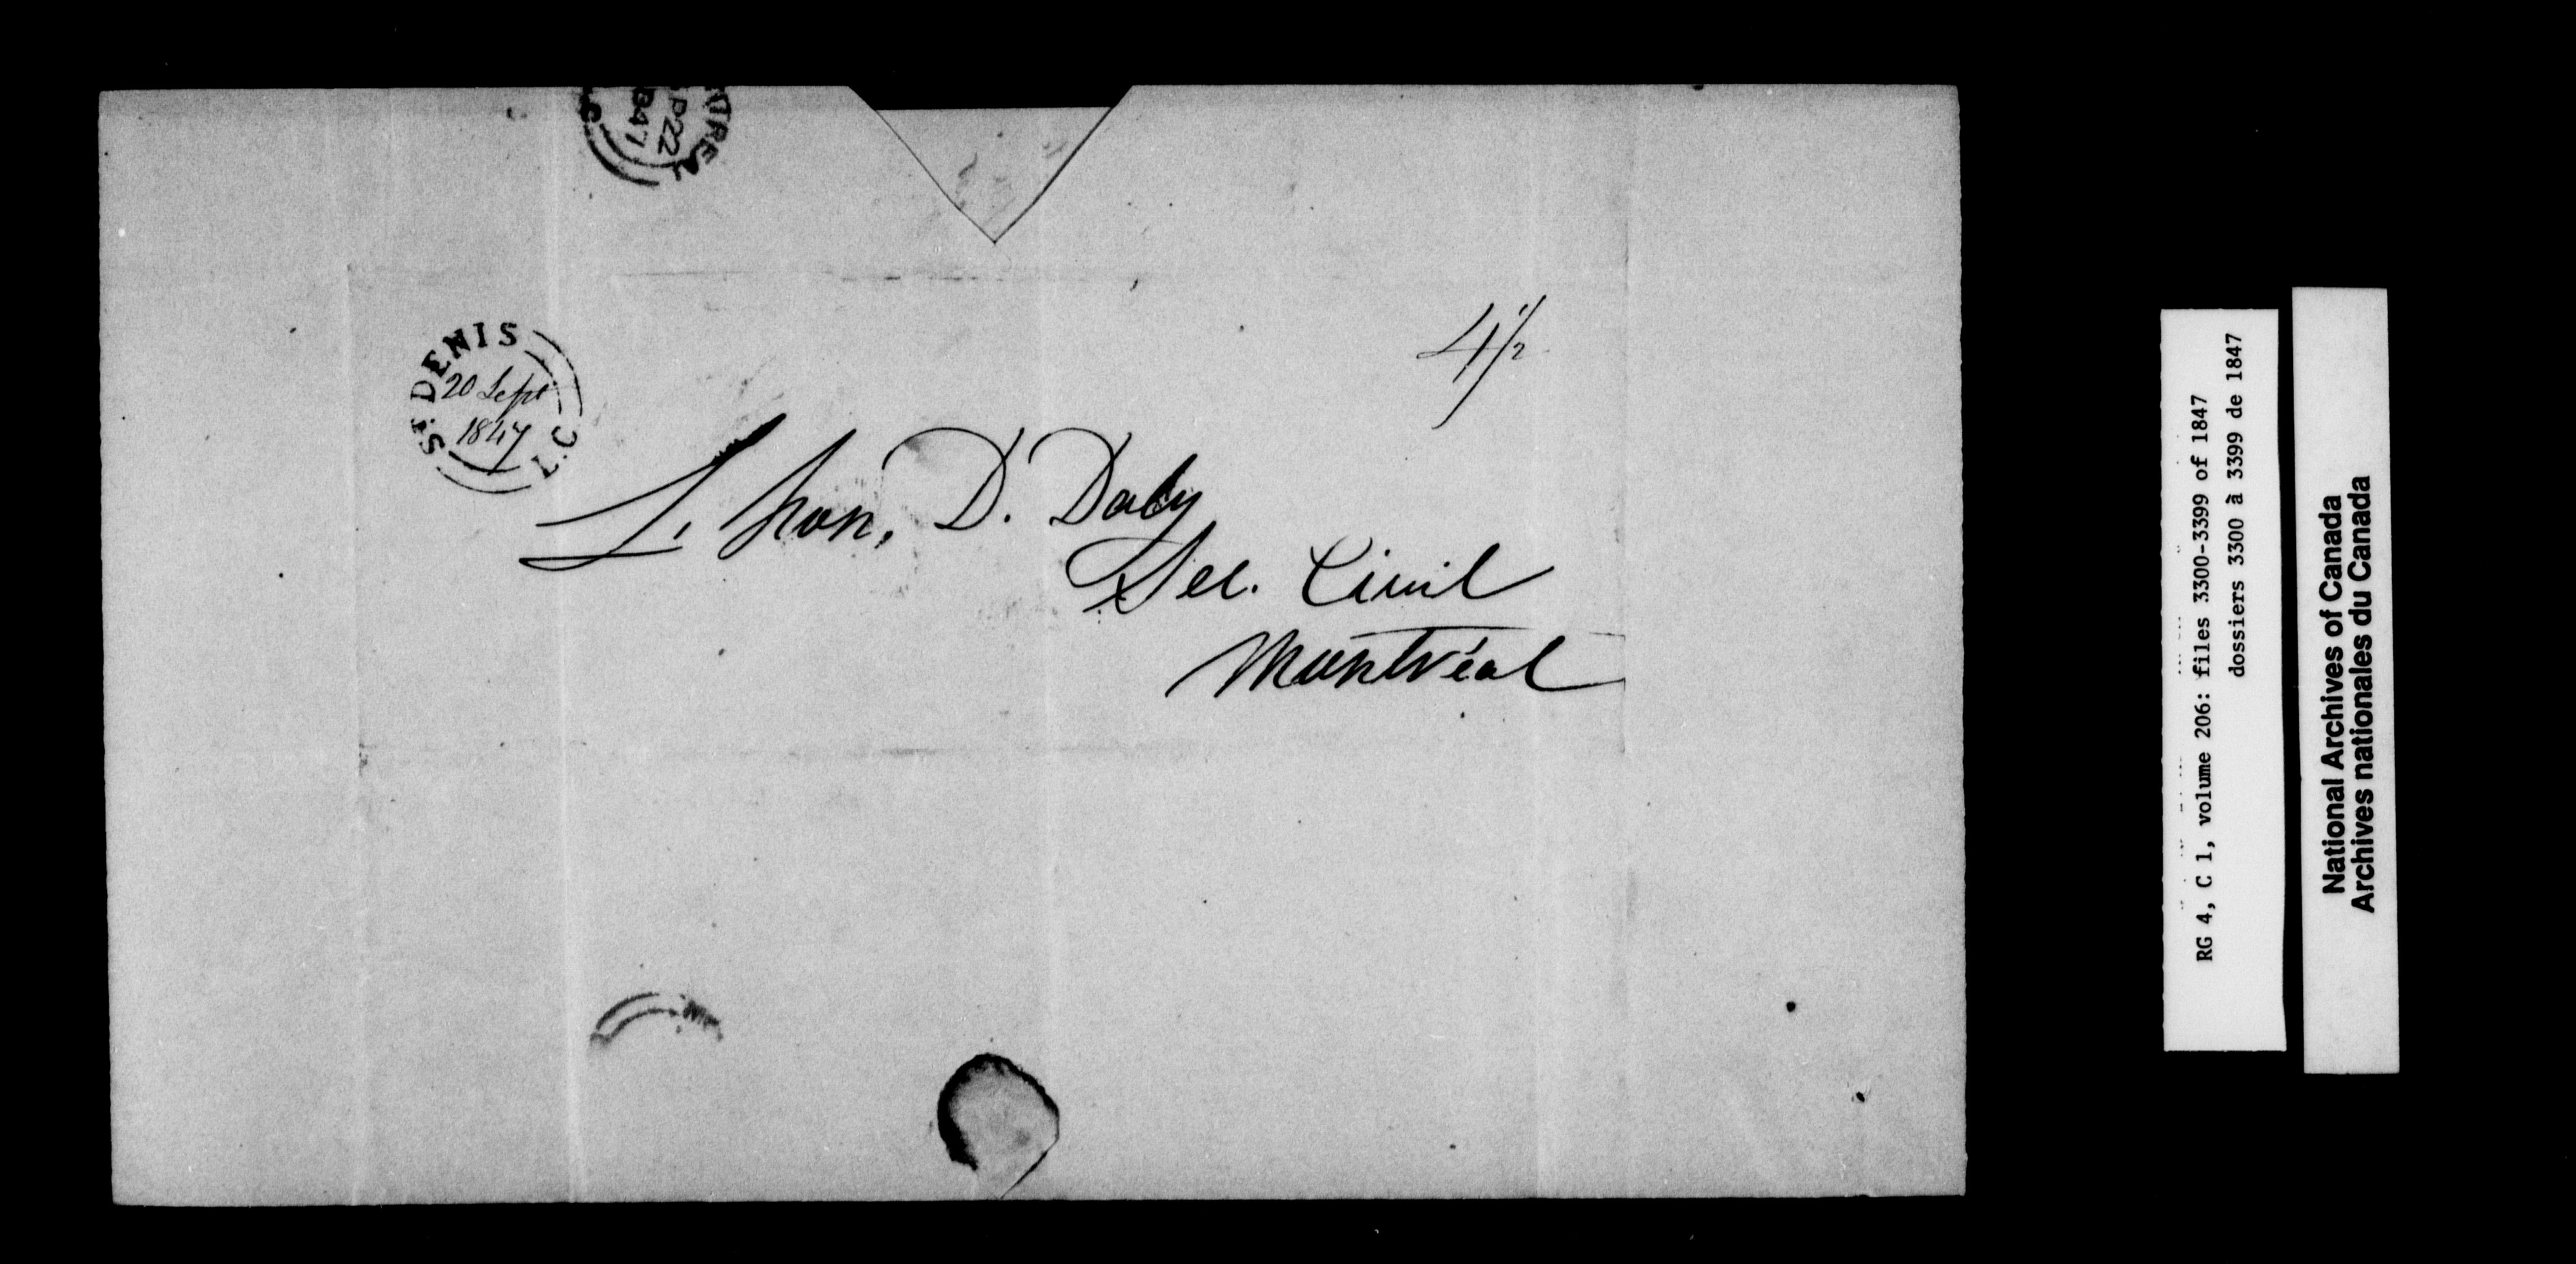 NTREAL
SP 22
1847
L.C
4 1/2
ST. DENIS
20 Sept
1847
L.C
L. hon. D. Daly
Sec. Civil
Montréal
RG 4, C 1, volume 206: files 3300-3399 of 1847
dossiers 3300 à 3399 de 1847
National Archives of Canada
Archives nationales du Canada